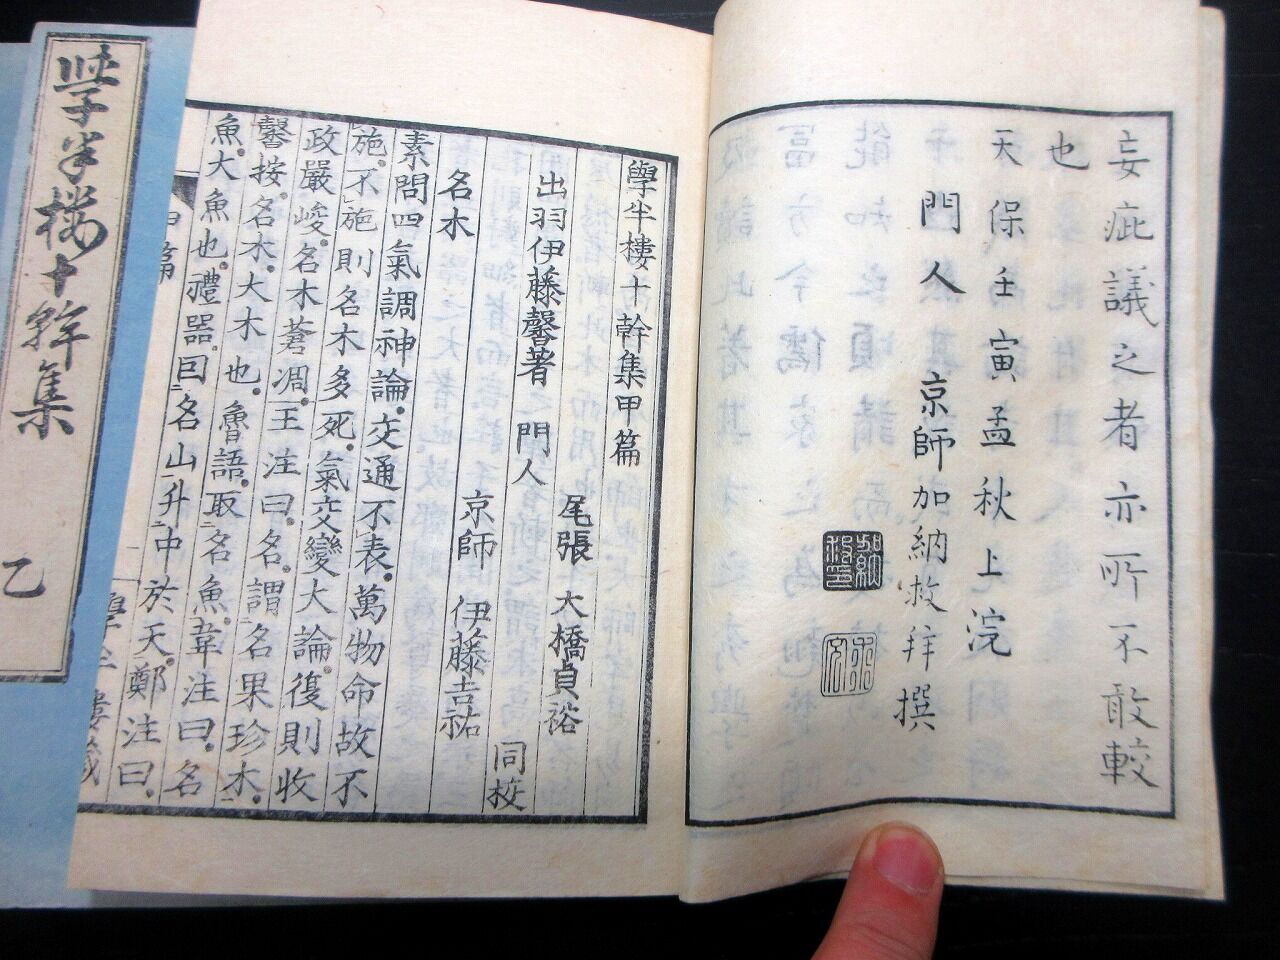 妄疵議之者亦所不敢較
也
天保壬寅孟秋上浣
門人
京師加納救拜撰
學半樓十幹集甲篇
尾張 大橋貞裕
出羽伊藤馨著 門人 同挍
京師 伊藤吉祐
名木
素問四氣調神論。交通不表。萬物命故不
施。不施則名木多死。氣交變大論。復則收
政嚴峻。名木蒼凋。王注曰。名。謂名果珍木。
馨按。名木。大木也。魯語。取名魚。韋注曰。名
魚。大魚也。禮器。因名山升中於天。鄭注曰。名
甲篇
學半樓十幹集 乙